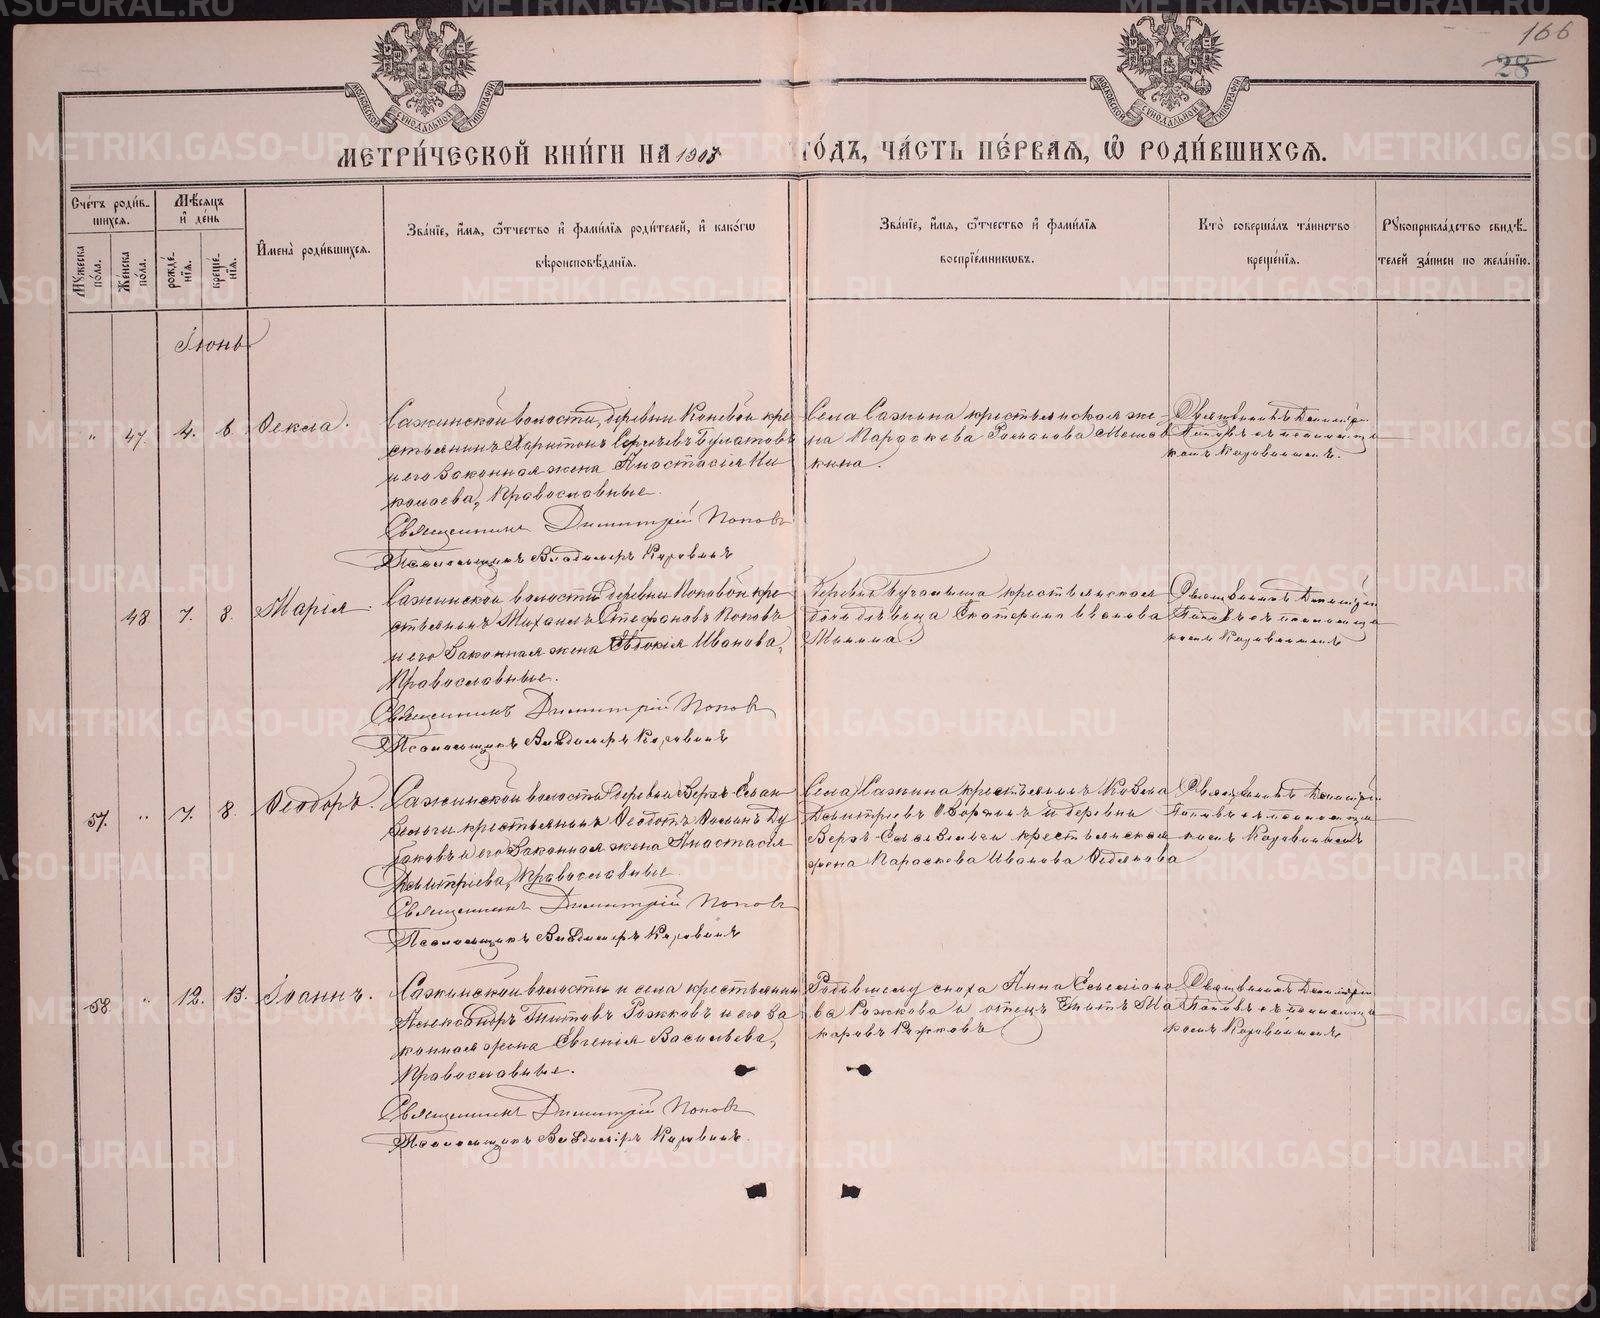 166
28
МЕТРИ́ЧЕСКОЙ КНИ́ГИ НА 1907 ГО́ДЪ, ЧА́СТЬ ПЕ́РВАЯ, Ѡ РОДИ́ВШИХСЯ.
Сче́тъ роди́в-
шихся.
Мѣ́сяцъ
и҆ де́нь
Му́жеска
по́ла.
Же́нска
по́ла.
рожде́-
нїя.
креще́-
нїя.
И҆мена̀ роди́вшихся.
Зва́нїе, и҆́мя, ѻ҆́тчество и҆ фами́лїя роди́телей, и҆ како́гѡ
вѣроисповѣ́данїя.
Зва́нїе, и҆́мя, ѻ҆́тчество и҆ фами́лїя
воспрїе́мникѡвъ.
Кто̀ соверша́лъ та́инство
креще́нїя.
Рꙋкоприкла́дство свидѣ́-
телей за́писи по жела́нїю.
Іюнь
" 47. 4. 6. Ѳекла.
Сажинской волости, деревни Коневой кре-
стьянинъ Харитонъ Сергѣевъ Булатовъ
и его законная жена Анастасія Ни
колаева, Православные.
Священникъ Димитрій Поповъ
Псаломщикъ Владиміръ Коровинъ
Села Сажина крестьянская же-
на Параскева Романова Меш
кина.
Священникъ Димитрій
Поповъ съ псаломщи
комъ Коровинымъ.
48 7. 8. Марія.
Сажинской волости деревни Поповой кре-
стьянинъ Михаилъ Стефановъ Поповъ
и его законная жена Евдокія Иванова,
Православные.
Священникъ Димитрій Поповъ
Псаломщикъ Владиміръ Коровинъ
Деревни крестьянская
дочь дѣвица Екатерина
Священникъ Димитрій
Поповъ съ псаломщи
комъ Коровинымъ
57. " 7. 8. Ѳеодоръ.
Сажинской волости деревни Верх-Селан
крестьянинъ Ѳеодотъ Ду
баковъ и его законная жена Анастасія
Димитріева, Православные.
Священникъ Димитрій Поповъ
Псаломщикъ Владиміръ Коровинъ
Села Сажина крестьянинъ Козьма
Димитріевъ и деревни
Верхъ крестьянская
жена Параскева Иванова
Священникъ Димитрій
Поповъ съ псаломщи
комъ Коровинымъ
58. " 12. 13. Іоаннъ.
Сажинской волости и села крестьянинъ
Александръ Титовъ Рожковъ и его за
конная жена Евгенія Васильева,
Православные.
Священникъ Димитрій Поповъ
Псаломщикъ Владиміръ Коровинъ.
Родившему сноха Анна Емелiано
ва Рожкова и отецъ Титъ Ма
каровъ Рожковъ
Священникъ Димитрій
Поповъ съ псаломщи
комъ Коровинымъ
METRIKI.GASO-URAL.RU